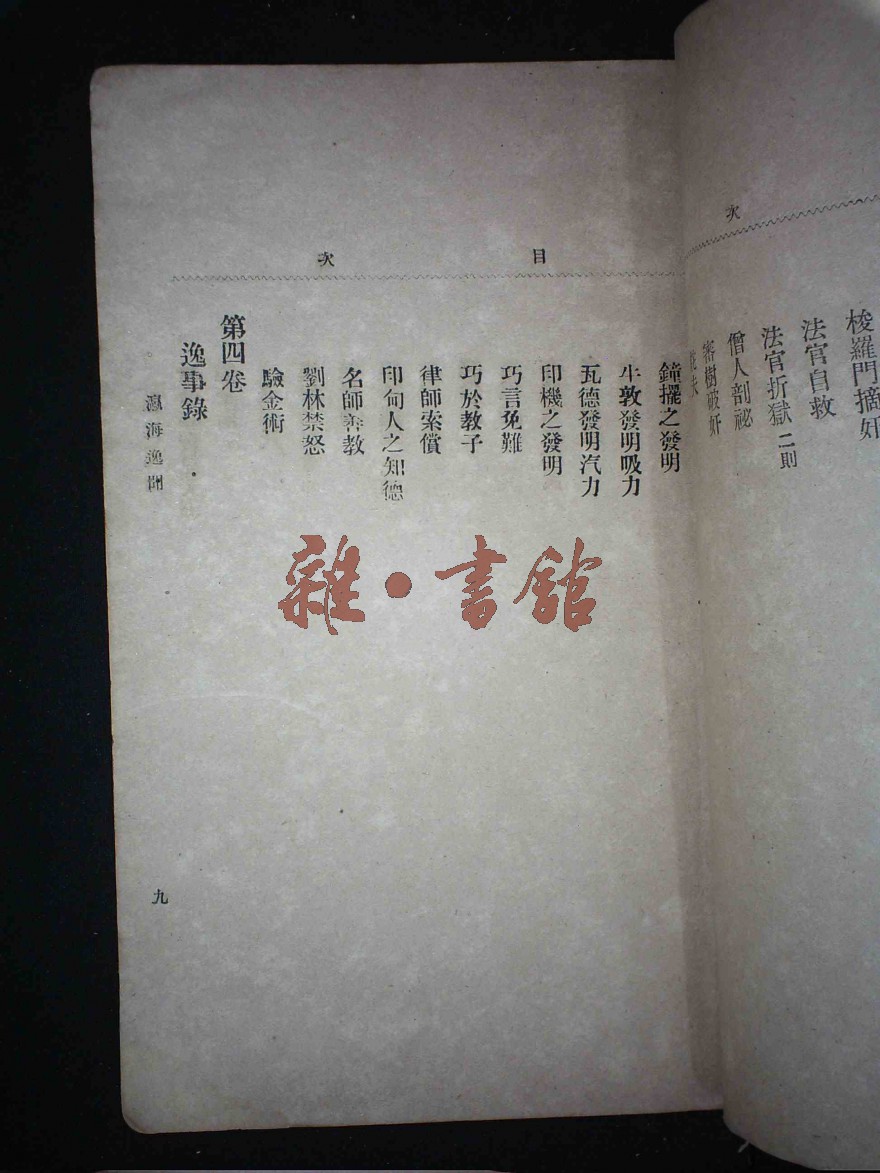 次
梭羅門摘奸
法官自救
法官折獄二則
僧人剖祕
審樹破奸
目次
鐘擺之發明
牛敦發明吸力
瓦德發明汽力
印機之發明
巧言免難
巧於教子
律師索償
印甸人之知德
名師善教
劉林禁怒
驗金術
第四卷
逸事錄
瀛海逸聞
九
雜·書館